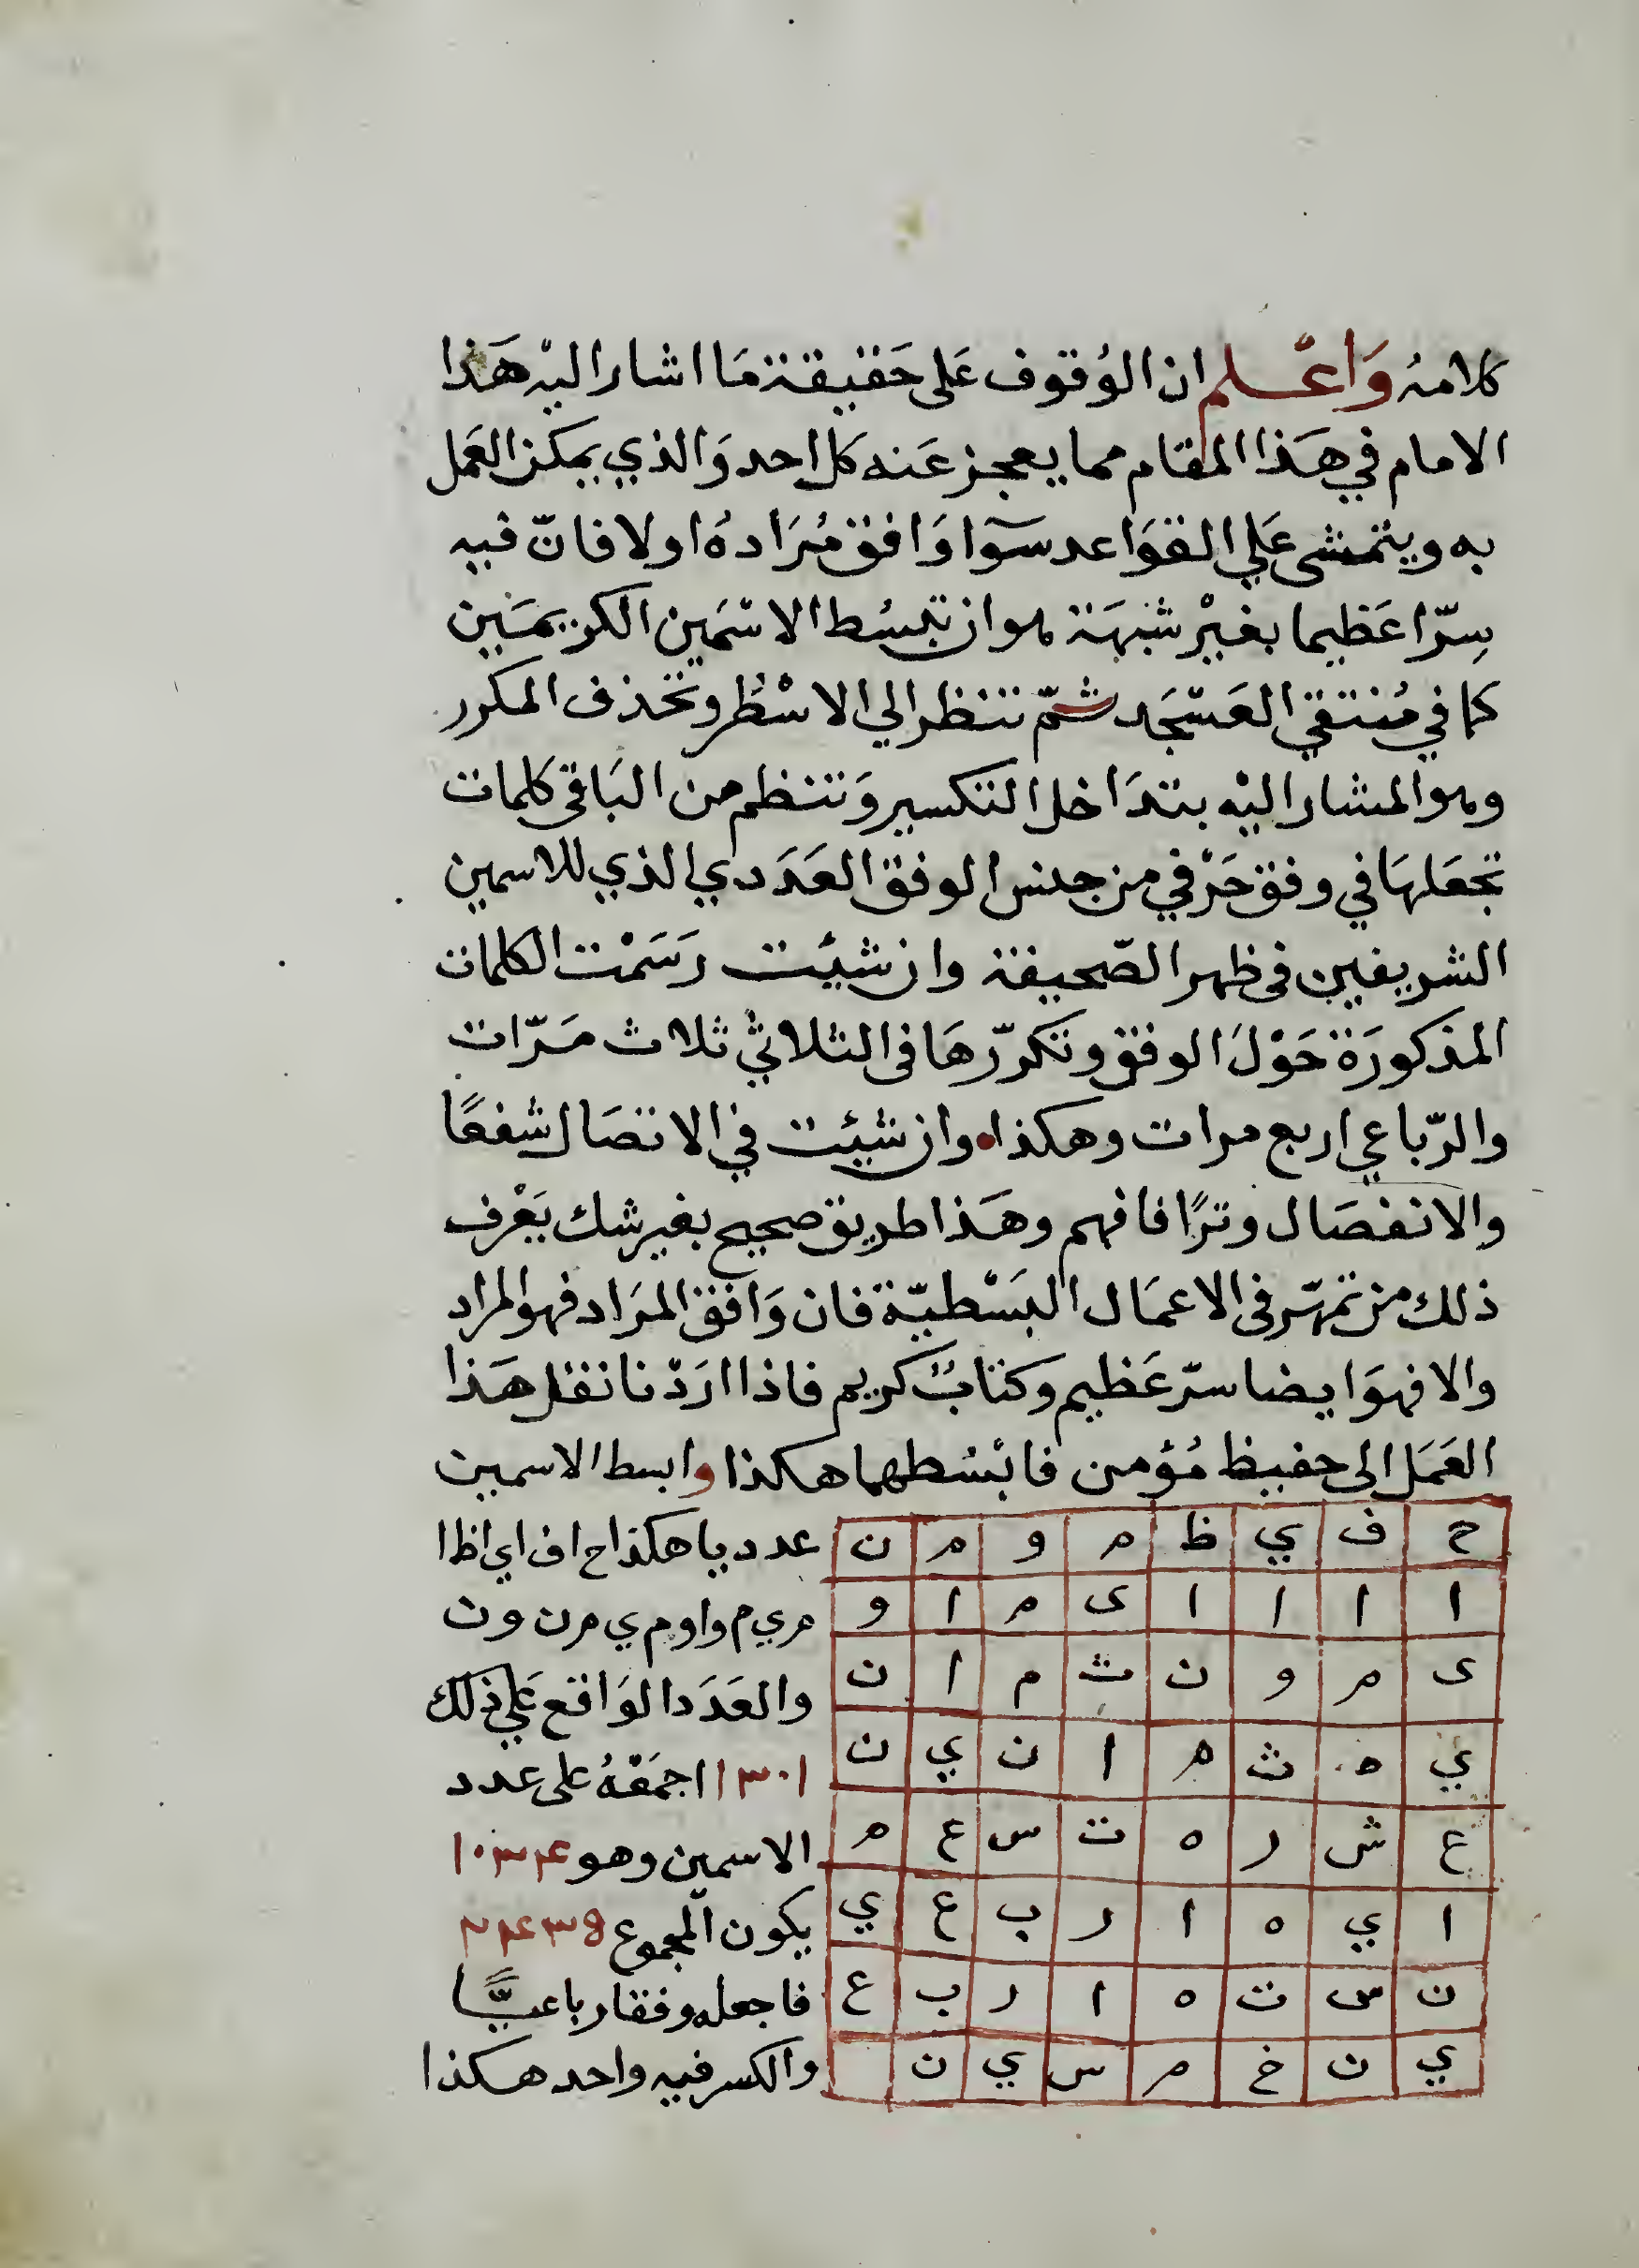 كلامهُ وَاعْلم ان الوُقوف عَلى حَقيقة مَا اشار اليْه هَذا
الامام في هَذا المقام مما يعجز عَنه كل احد وَالذي يمكن العَمل
به ويتمشى عَلي القوَاعد سوَآ وَافق مُرَاده اولا فانّ فيه
سِرّا عَظيما بغيْر شبهَة وهو ان تبسُط الاسْمَين الكريمَين
كما في مُنتقي العَسْجَد ثمّ تنظر الي الاسْطر وتحذف المكرر
وهو المشار اليْه بتدَاخل التكسير وَتنظم من البَاقي كلمات
تجعَلهَا في وفق حَرْفي من جنس الوفق العَدَدي الذي للاسمين
الشريفين في ظهر الصّحيفة وان شيئت رَسَمْت الكلمات
المذكورَة حَوْلَ الوفق وتكرّرهَا في الثلاثي ثلاث مَرّات
والرّباعي اربع مرات وهكذا وان شيئت في الاتصَال شفعًا
والانفصَال وترًا فافهم وهَذا طريق صحيح بغير شك يَعْرف
ذلك من تمهّر في الاعمَال البَسْطيّة فان وَافق المرَاد فهو المراد
والا فهوَ ايضا سرّ عَظيم وكتابٌ كريم فاذا ارَدْنا نقل هَذا
العَمَل الى حفيظ مُؤمن فابْسُطهما هكذا وابسط الاسمين
ح ف ي ظ م و م ن
ا ا ا ا ى م ا و
ى م و ن ث م ا ن
ي ه ث م ا ن ي ن
ع ش ر ه ت س ع م
ا ي ه ا ر ب ع ي
ن س ت ه ا ر ب ع
ي ن خ م س ي ن
عدديا هكذا ح ا ف ا ي ا ظ ا
م ي م و ا و م ي م ن و ن
والعَدَد الوَاقع عَلي ذلك
١٣٠١ اجمَعْهُ على عدد
الاسمين وهو ١٠٣٤
يكون المجموع ٢٤٣٥
فاجعله وفقا رباعيًّا
والكسر فيه واحد هكذا